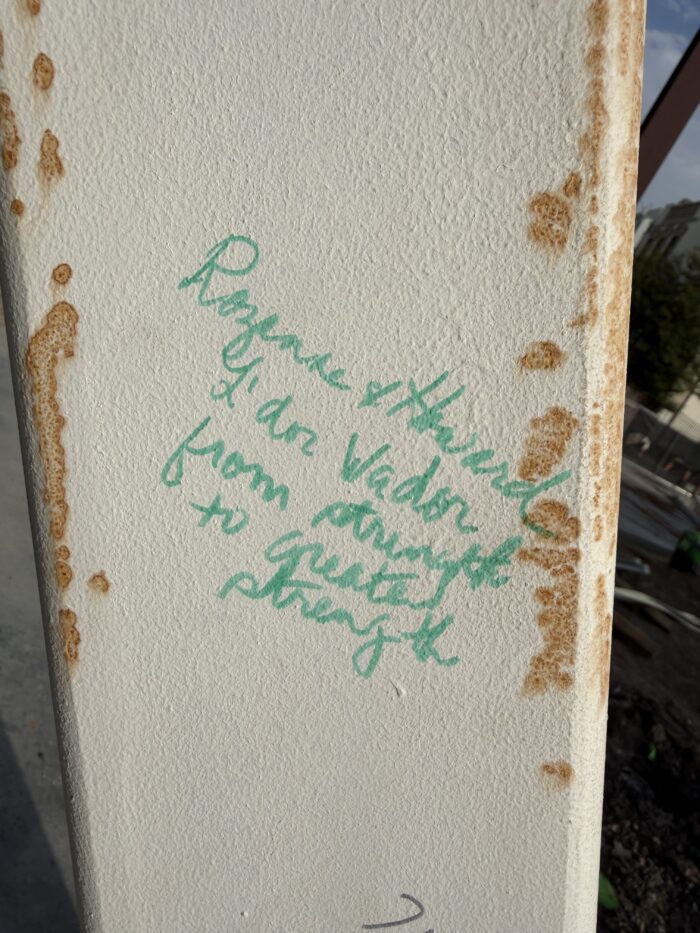 Rozanne & Howard
L'dor Vador
from strength
to greater
strength